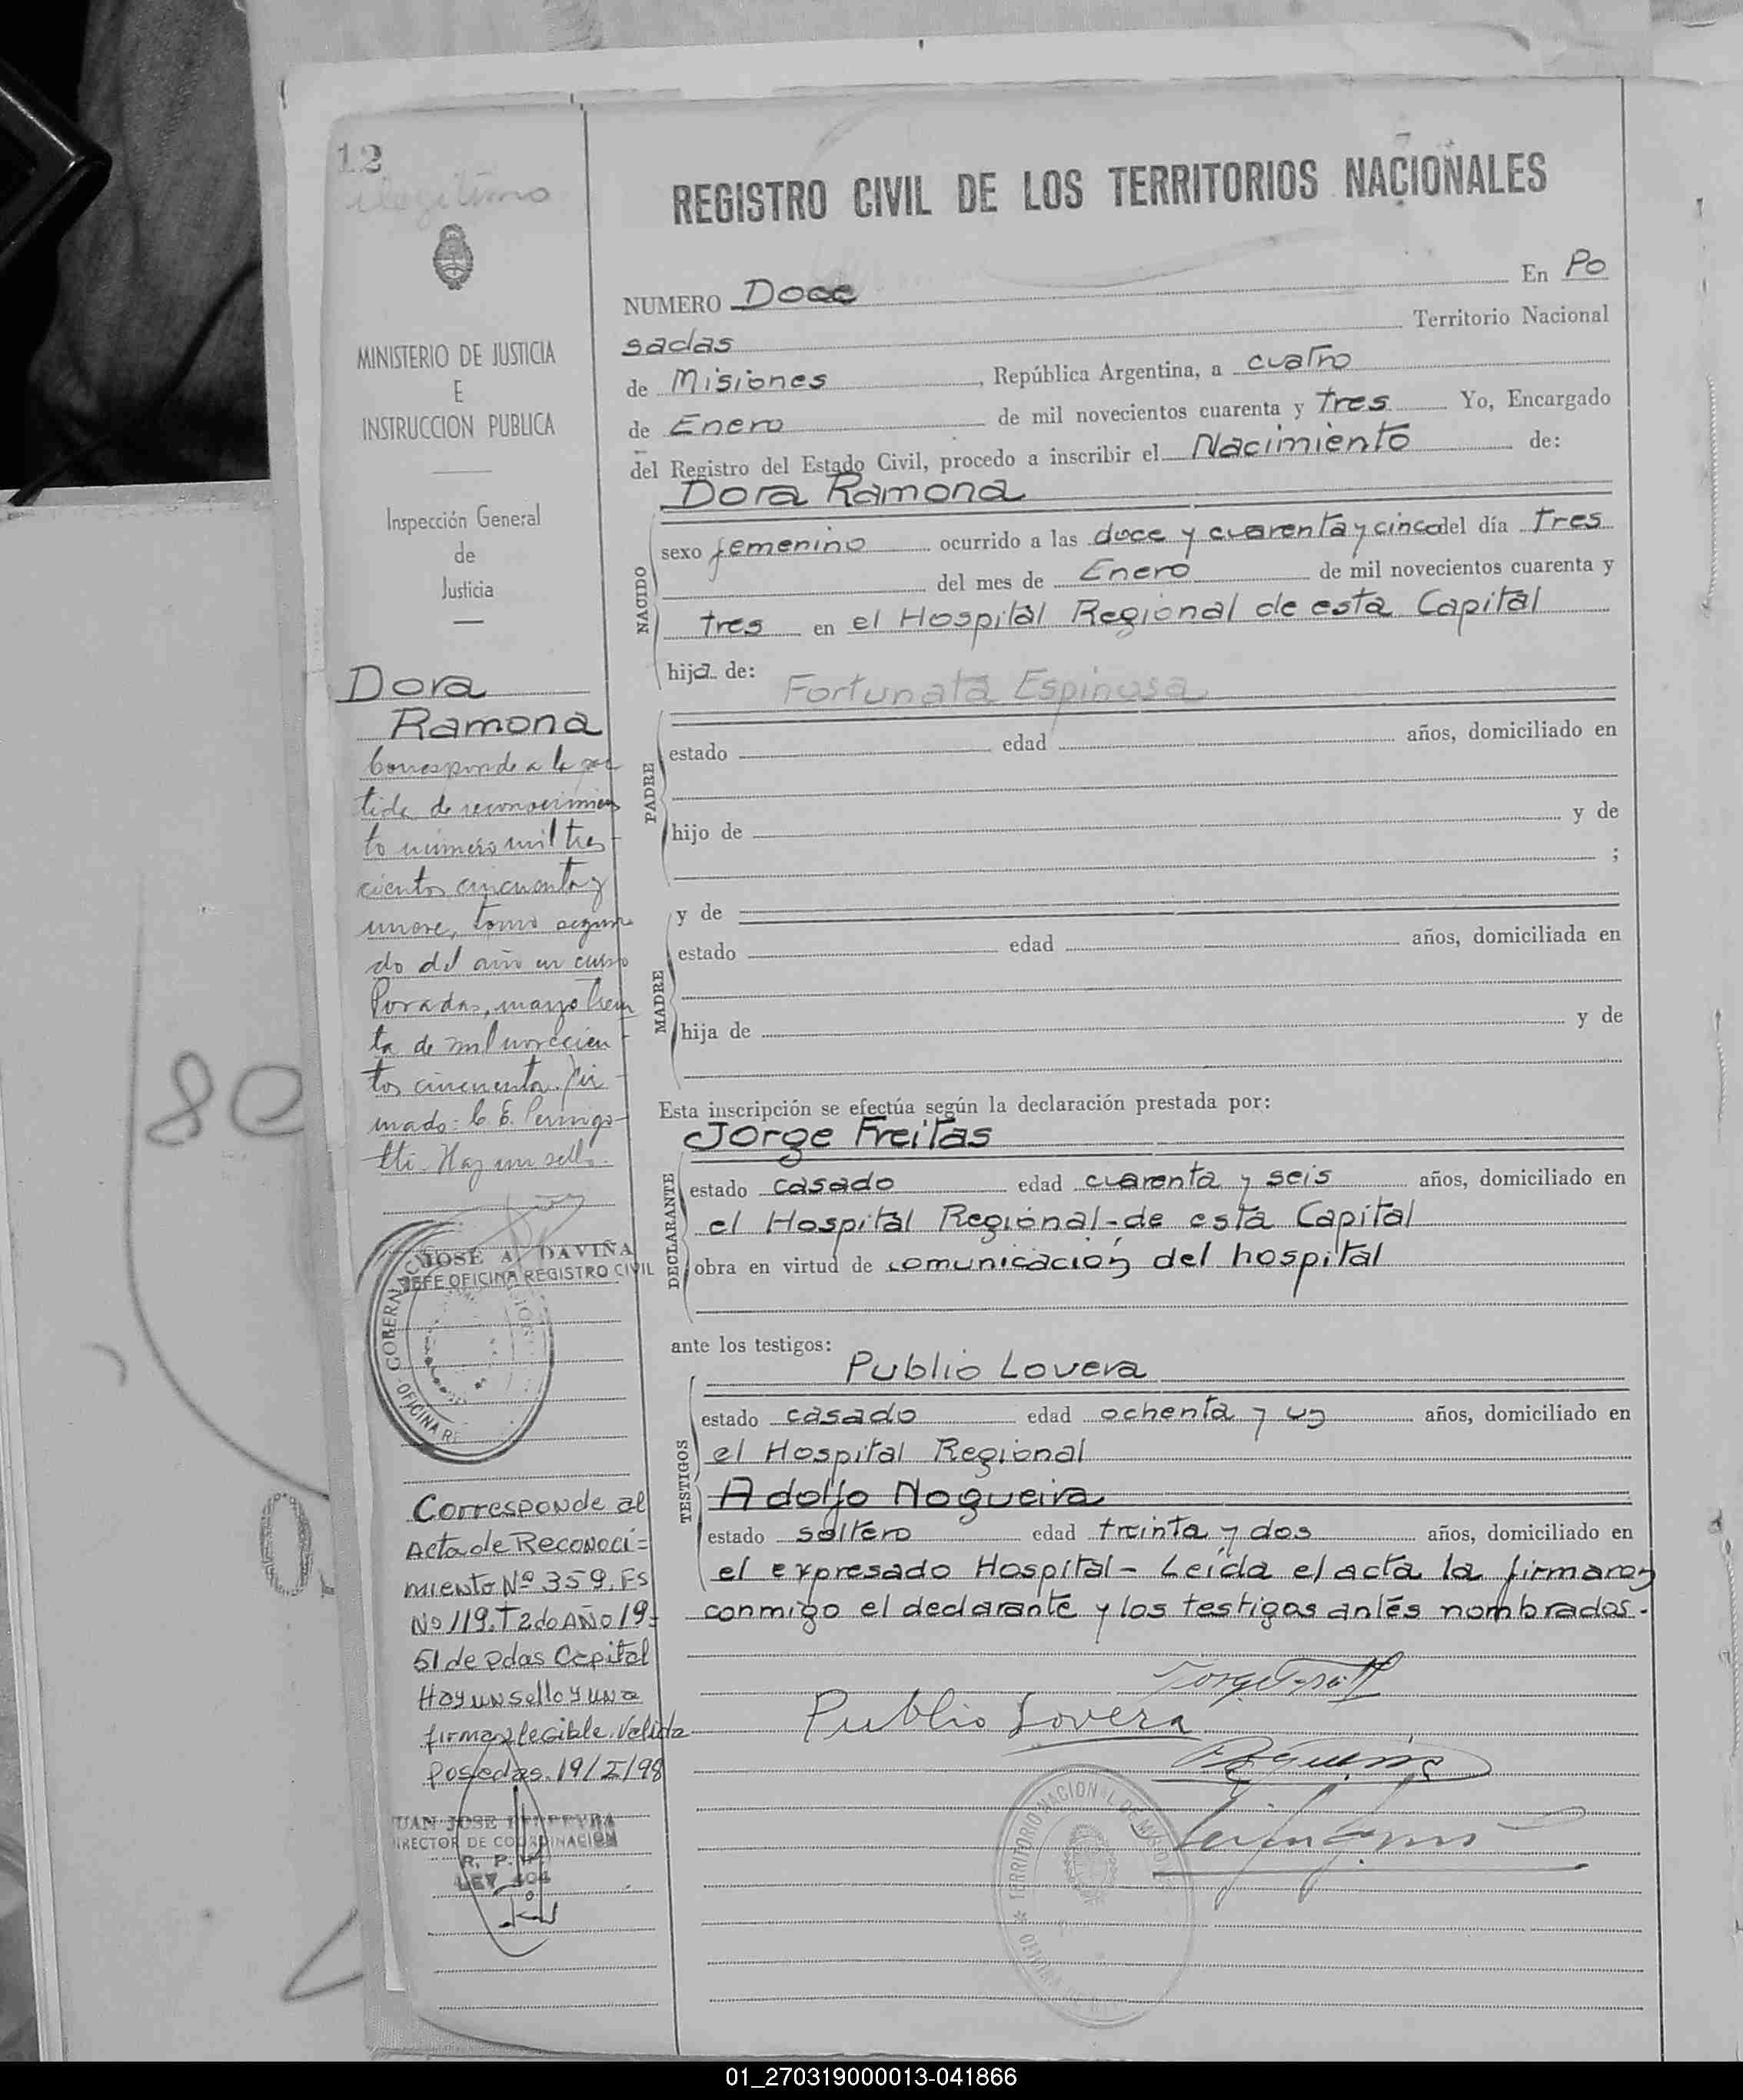 12
ilegitimo
MINISTERIO DE JUSTICIA
E
INSTRUCCION PUBLICA
Inspección General
de
Justicia
Dora
Ramona
Corresponde a la par
tida de reconocimien
to número mil tres
cientos cincuenta y
nueve, tomo segun
do del año en curso
Posadas, mayo trein
ta de mil novecien
tos cincuenta. Fir
mado: C. E.
Hay un sello.
JOSE A. DAVIÑA
JEFE OFICINA REGISTRO CIVIL
GOBERNACION
OFICINA RE
Corresponde al
Acta de Reconoci=
miento Nº 359. Fs
Nº 119. T 2do AÑO 19=
51 de Pdas Capital
Hay un sello y una
firma ilegible. Valida
Posadas. 19/I/98
JUAN JOSE
DIRECTOR DE COORDINACION
R. P.
LEY 404
REGISTRO CIVIL DE LOS TERRITORIOS NACIONALES
NUMERO Doce En Po
sadas Territorio Nacional
de Misiones, República Argentina, a cuatro
de Enero de mil novecientos cuarenta y tres Yo, Encargado
del Registro del Estado Civil, procedo a inscribir el Nacimiento de:
NACIDO
Dora Ramona
sexo femenino ocurrido a las doce y cuarenta y cinco del día tres
del mes de Enero de mil novecientos cuarenta y
tres en el Hospital Regional de esta Capital
hija de:
Fortunata Espinosa
PADRE
estado edad años, domiciliado en
hijo de y de
;
MADRE
y de
estado edad años, domiciliada en
hija de y de
Esta inscripción se efectúa según la declaración prestada por:
DECLARANTE
Jorge Freitas
estado casado edad cuarenta y seis años, domiciliado en
el Hospital Regional-de esta Capital
obra en virtud de comunicación del hospital
ante los testigos:
TESTIGOS
Publio Lovera
estado casado edad ochenta y un años, domiciliado en
el Hospital Regional
Adolfo Nogueira
estado soltero edad treinta y dos años, domiciliado en
el expresado Hospital- Leída el acta la firmaron
conmigo el declarante y los testigos antes nombrados.
Publio Lovera
TERRITORIO NACIONAL DE MISIONES
80
0
01_270319000013-041866